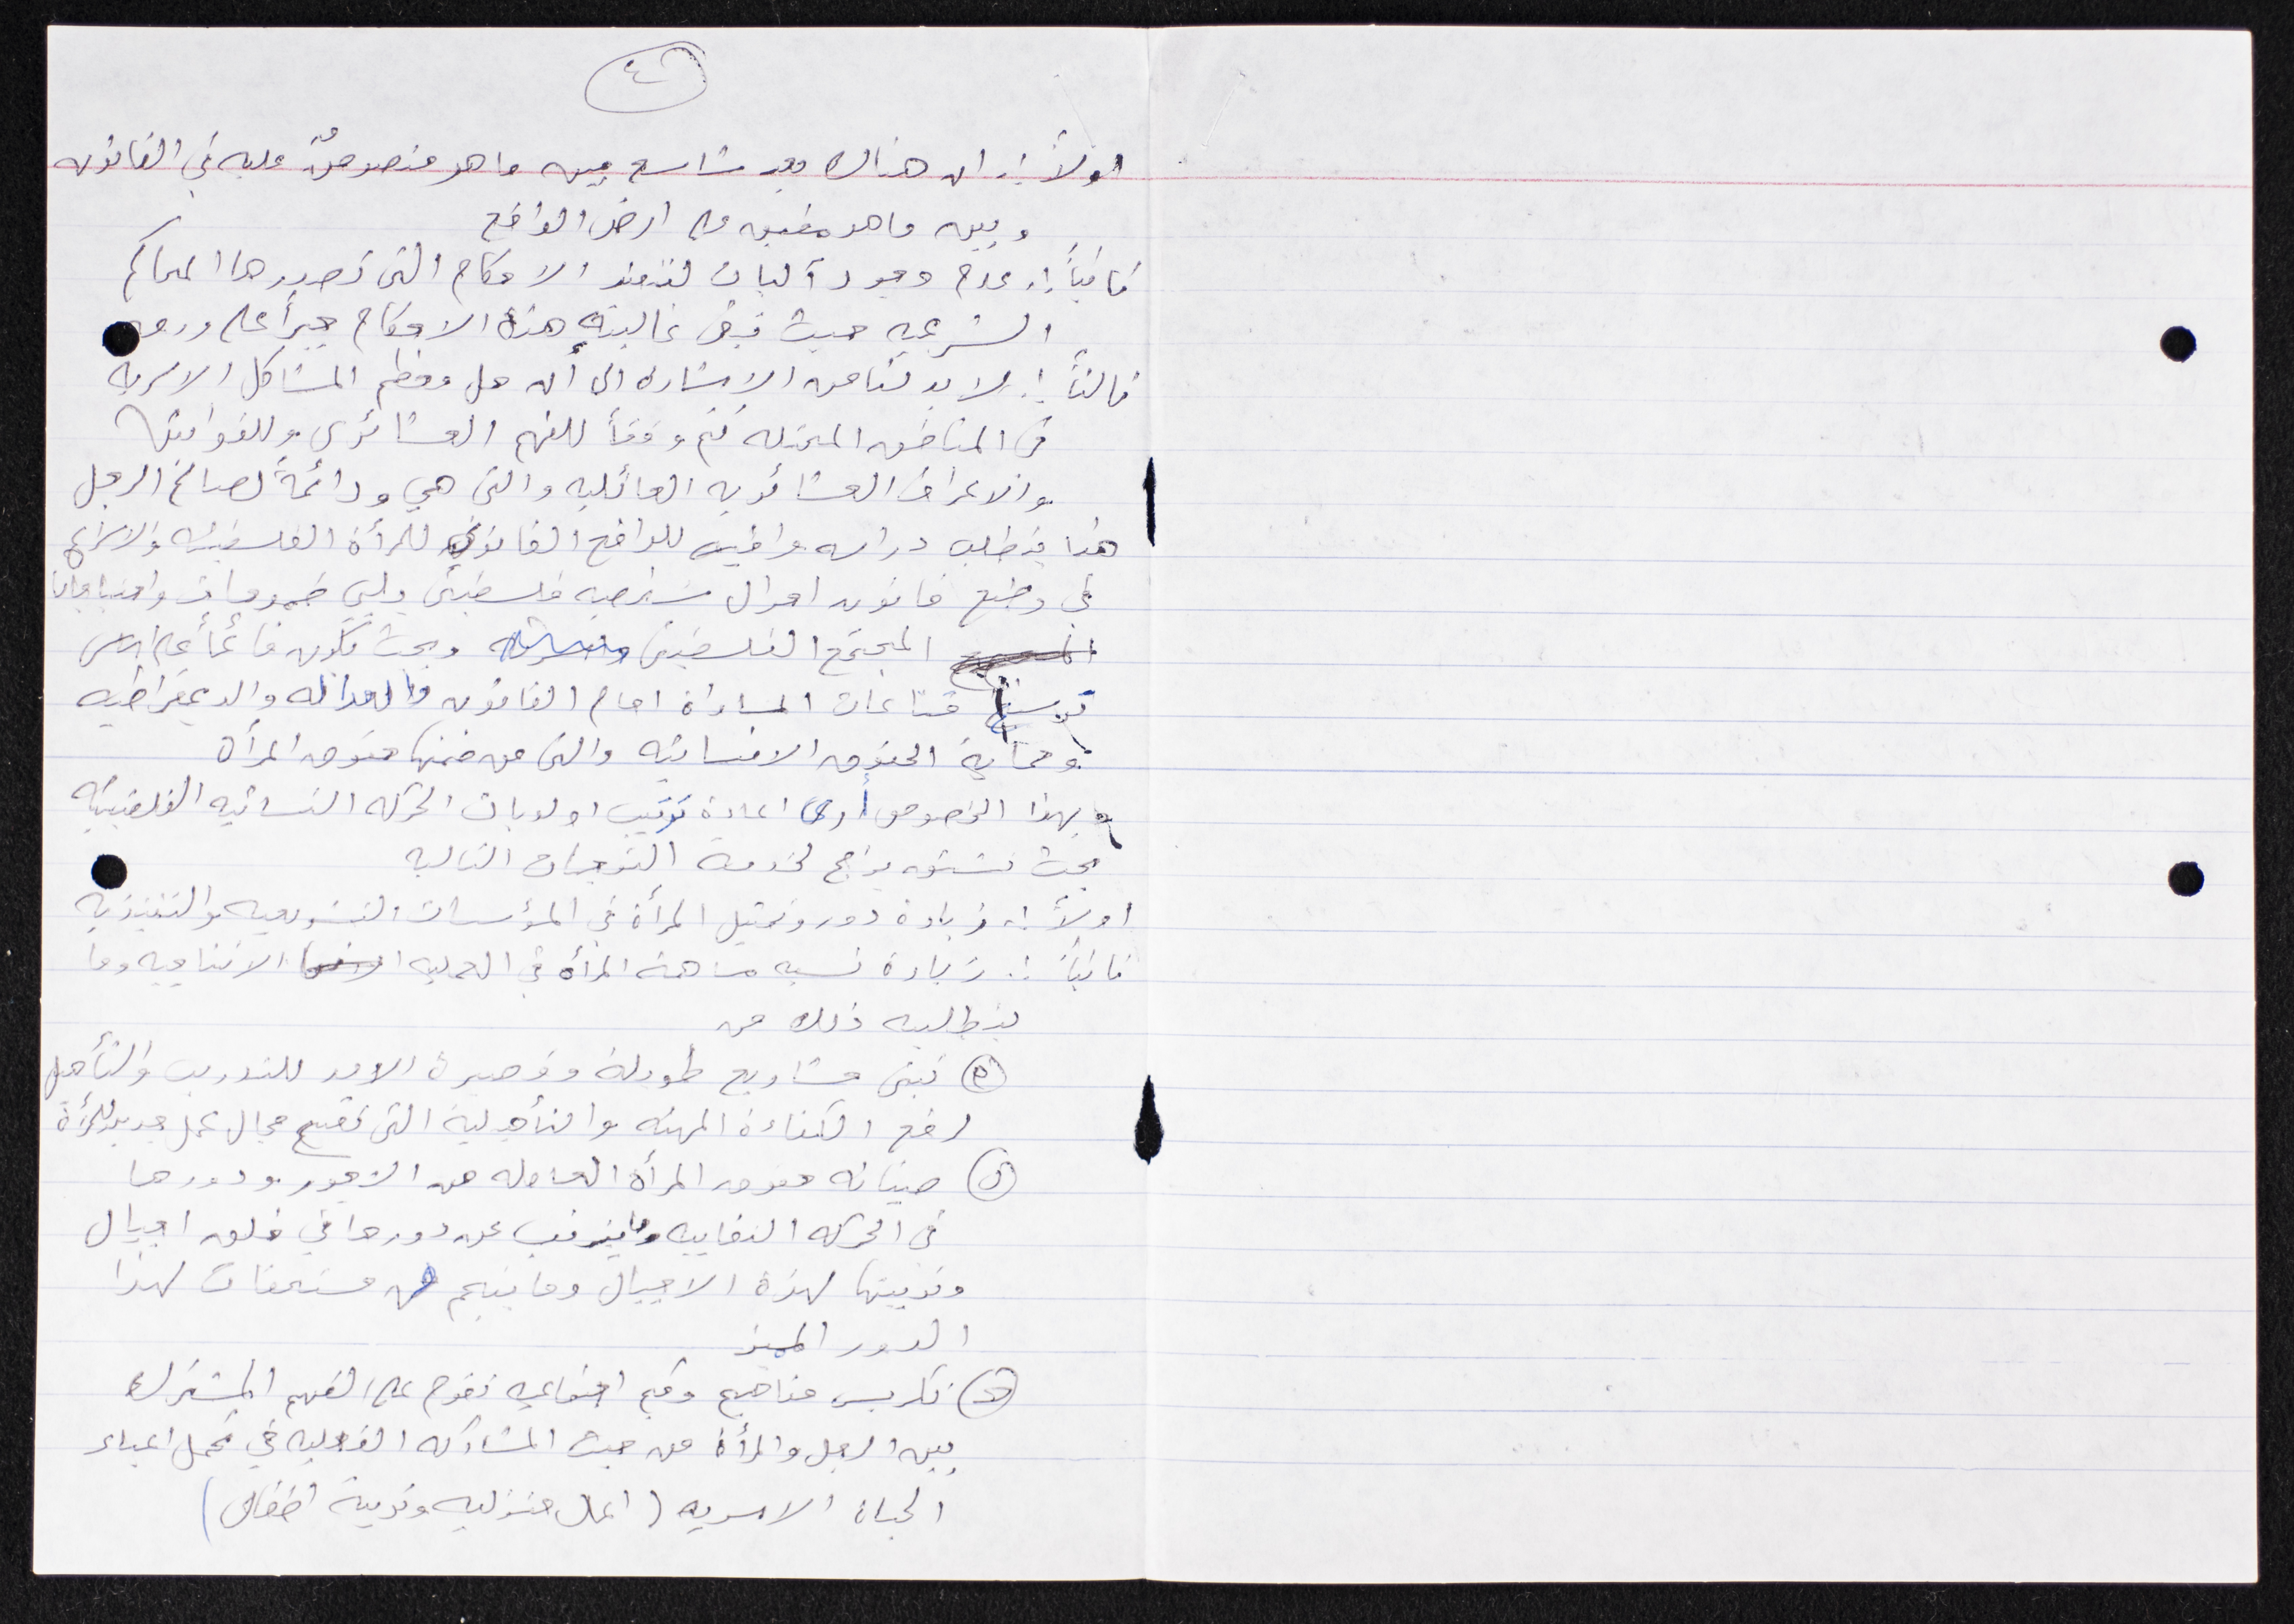 ٤
اولاً :. ان هناك بعد شاسع بين ما هو منصوصٌ عليه في القانون
وبين ما هو مطبق على ارض الواقع
ثانياً :. عدم وجود آليات لتنفيذ الاحكام التي تصدرها المحاكم
الشرعيه حيث تبقى غالبية هذه الاحكام حبراً على ورق
ثالثاً :. لا بد لنا من الاشاره الى أن حل معظم المشاكل الاسريه
في المناطق المحتله تتم وفقاً للفهم العشائري وللقوانين
والاعراف العشائريه العائليه والتي هي ودائمةً لصالح الرجل
هذا يتطلب دراسه وافيه للواقع القانوني للمرأة الفلسطينيه والاسراع
في وضع قانون احوال شخصيه فلسطيني يلبي طموحات واحتياجات
المجتمع الفلسطيني وبحيث يكون قائماً على اسس
ترسيخ قناعات المساواة امام القانون والعداله والديمقراطيه
وحماية الحقوق الانسانيه والتي من ضمنها حقوق المرأة
وبهذا الخصوص أرى اعادة ترتيب اولويات الحركه النسائيه الفلسطينيه
بحيث تشتق برامج لخدمة التوجهات التاليه
اولاً :. زيادة دور وتمثيل المرأة في المؤسسات التشريعيه والتنفيذيه
ثانياً :. زيادة نسبه مساهمة المرأة في العمليه الانتاجيه وما
يتطلبه ذلك من
تبني مشاريع طويلة وقصيرة الامد للتدريب والتأهيل
لرفع الكفاءة المهنيه والتأهيلية التي تفتح مجال عمل جديد للمرأة
صيانه حقوق المرأة العامله من الاجور ودورها
في الحركه النقابيه وما يترتب عن دورها في خلق اجيال
وتربيتها لهذة الاجيال وما ينجم من مستحقات لهذا
الدور المميز
تكريس مناهج وقيم اجتماعيه تقوم على الفهم المشترك
بين الرجل والمرأة من حيث المشاركه الفعليه في تحمل اعباء
الحياة الاسريه (اعمال منزليه وتربية اطفال)